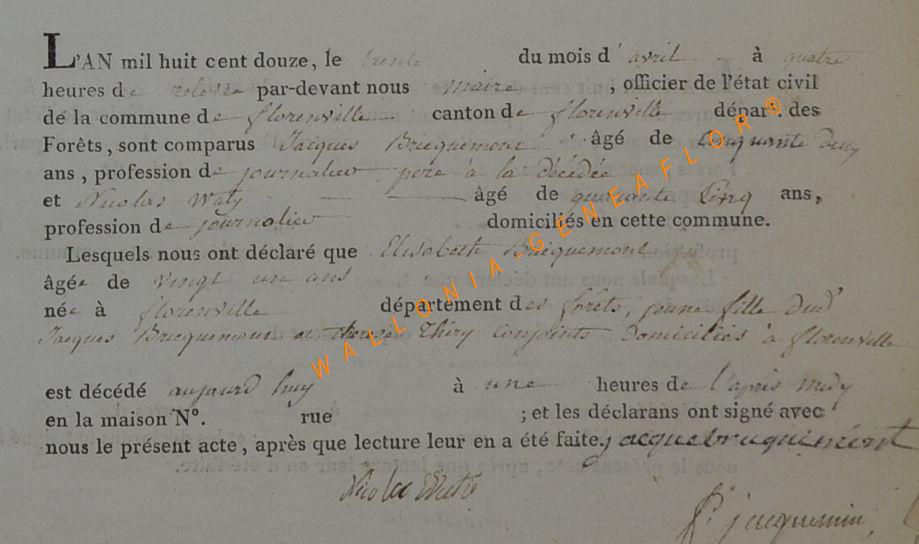 L'AN mil huit cent douze, le trente du mois d' avril à quatre
heures de relevée par-devant nous maire, officier de l'état civil
de la commune de florenville canton de florenville départ. des
Forêts, sont comparus Jacques Bricquemont âgé de Cinquante deux
ans, profession de journalier pere à la décédée
et Nicolas Waty âgé de quarante Cinq ans,
profession de journalier domiciliés en cette commune.
Lesquels nous ont déclaré que Elisabeth Bricquemont
âgée de vingt un ans
née à florenville département des forêts, jeune fille dud'
Jacques Bricquemont et therese Thiry conjoints domiciliés à florenville
est décédé aujourd huy à une heures de l'apres midy
en la maison N°. rue ; et les déclarans ont signé avec
nous le présent acte, après que lecture leur en a été faite. jacquebruquiment
Nicolas
jacquemin
WALLONIA-GENEAFLOR®